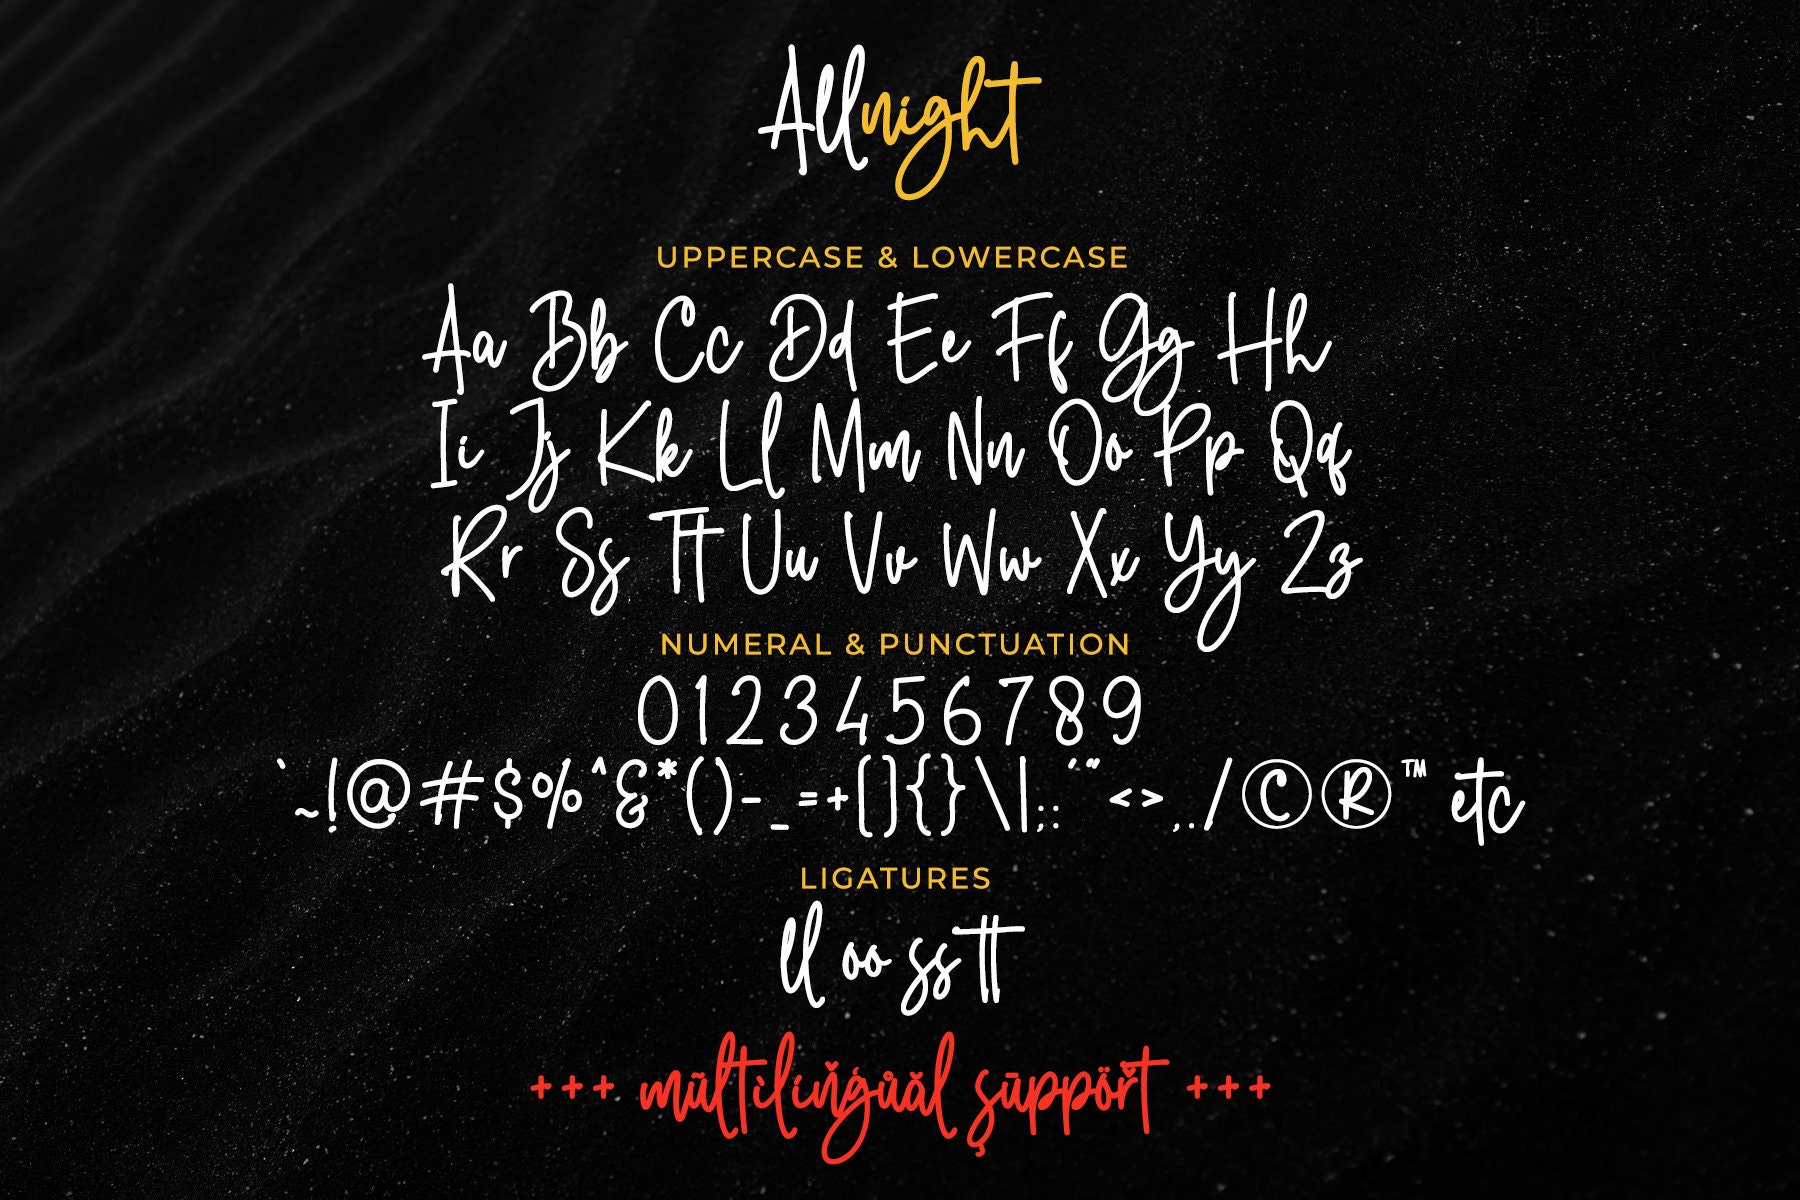 Allnight
UPPERCASE & LOWERCASE
Aa Bb Cc Dd Ee Ff Gg Hh
Ii Jj Kk Ll Mm Nn Oo Pp Qq
Rr Ss Tt Uu Vv Ww Xx Yy Zz
NUMERAL & PUNCTUATION
0123456789
`~!@#$%^&*()-_=+[]{}\|;:'"<>,./©®™ etc
LIGATURES
ll oo ss tt
+++ mūltìlíňģůăl şūppöřt +++